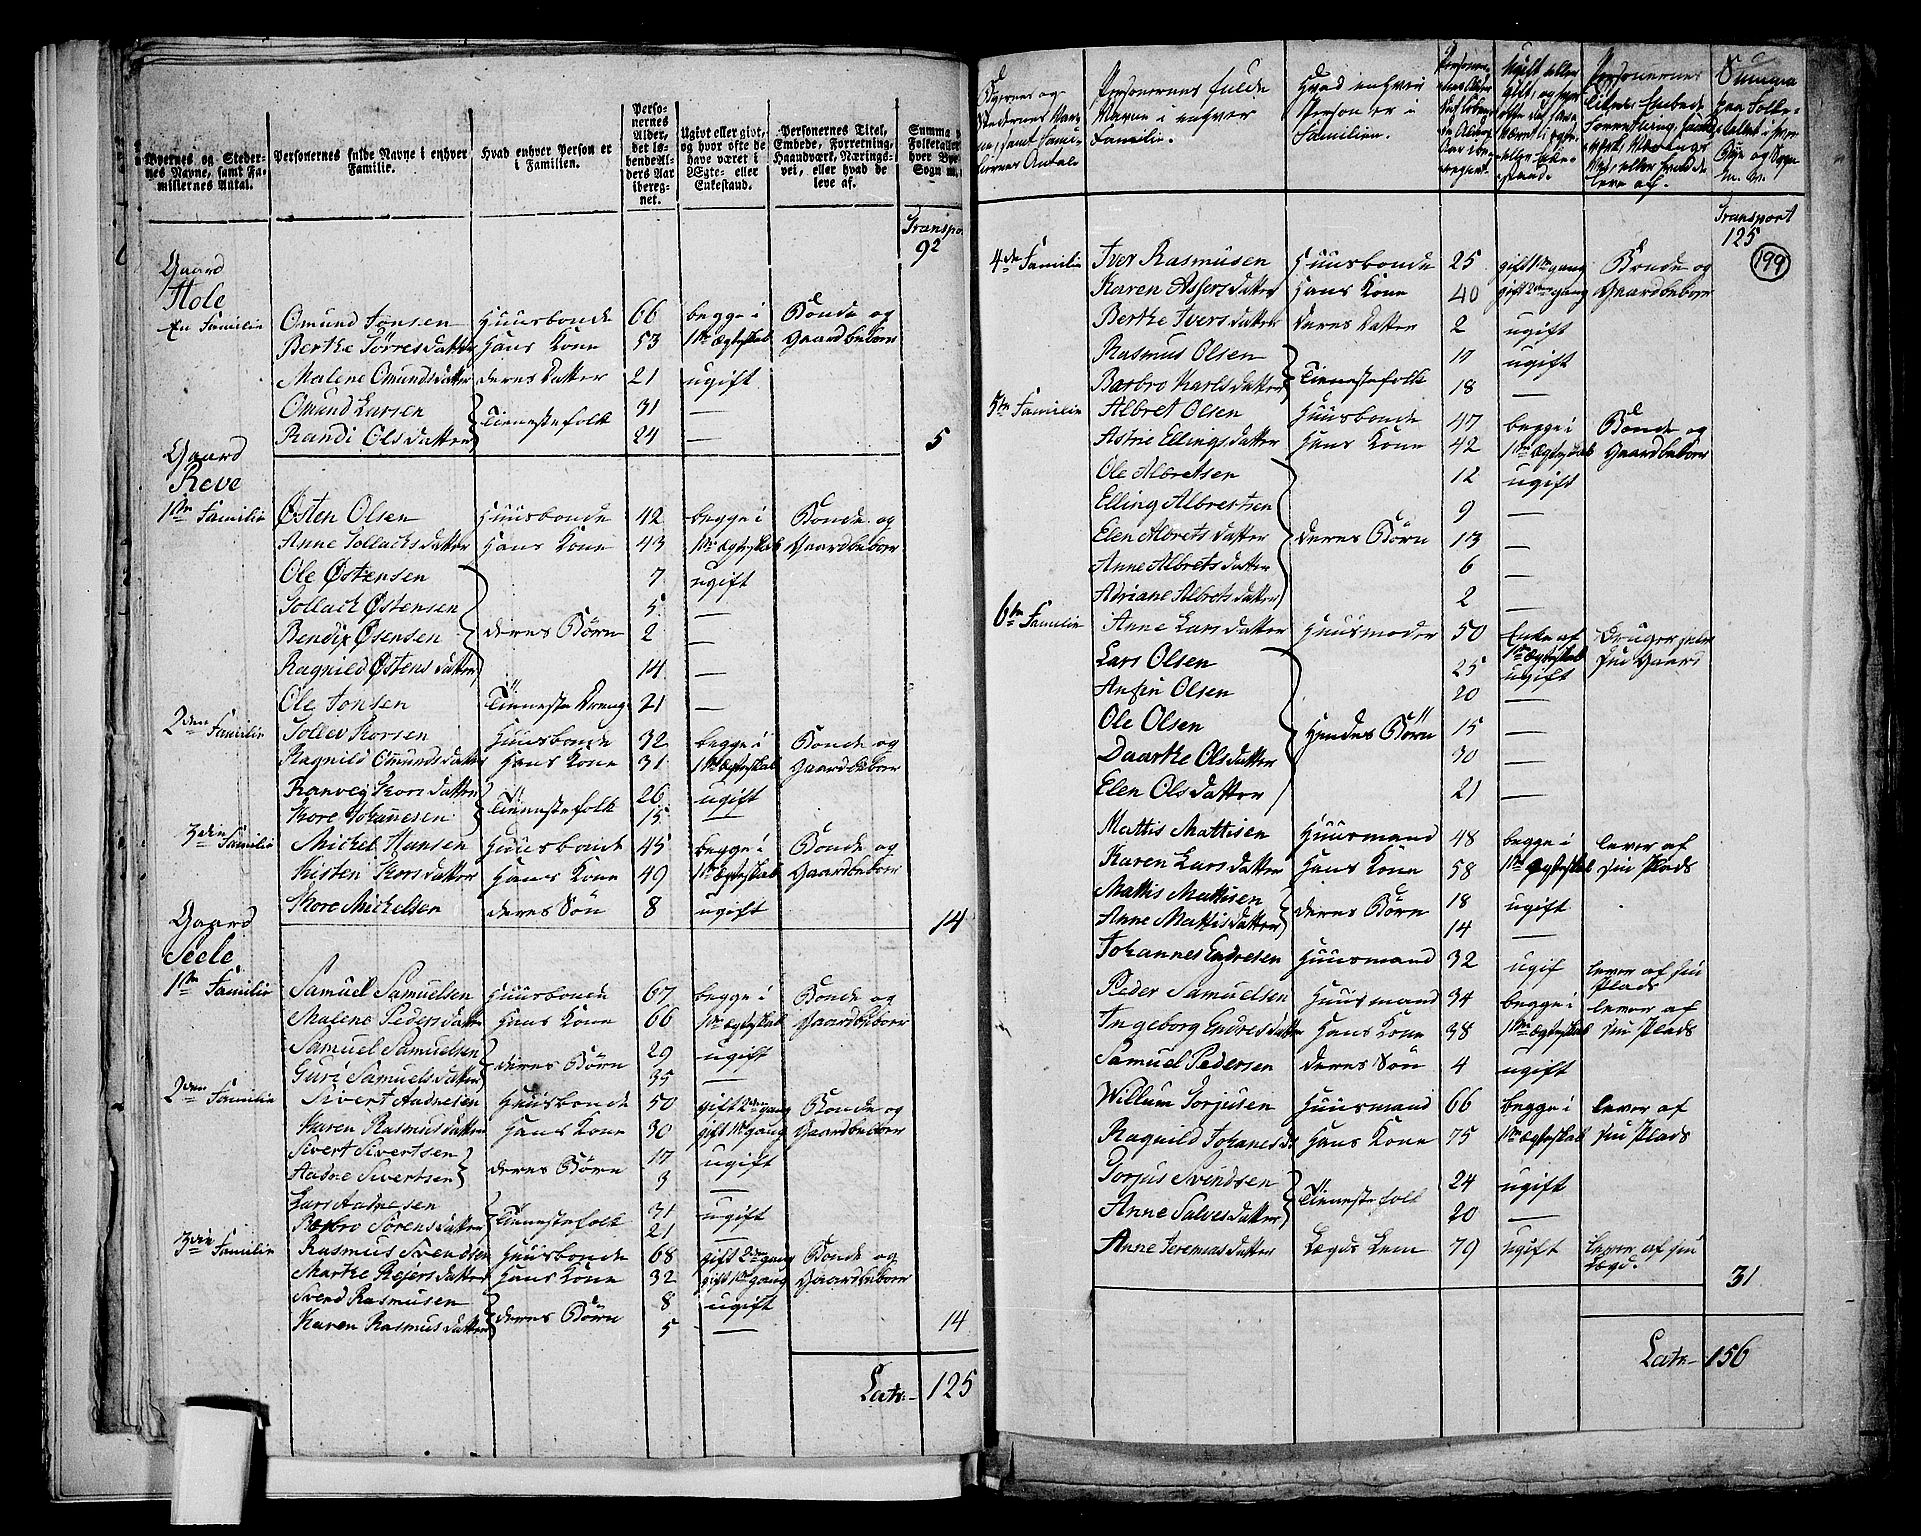 Byernes og Steder-
nes Navne, samt Fa-
milliernes Antal.
Personernes fulde Navne i enhver
Familie.
Hvad enhver Person er
i Familien.
Perso-
nernes
Alder,
det lø-
bende Al-
ders Aar
ibereg-
net.
Ugivt eller givt,
og hvor ofte de
have været i
Ægte- eller
Enkestand.
Personernes Titel,
Embede, Forretning,
Haandværk, Nærings-
vei, eller hvad de
leve af.
Summa
Folketallet
hver By
Sogn
Transpo.
92
Gaard
Hole
En Familie Omund Jonsen Huusbonde 66 begge i Bonde og
Berthe Torresdatter Hans Kone 53 1ste Ægteskab Gaardbeboer
Malene Omundsdatter deres Datter 21 ugift
Omund Larsen Tienestefolk 31 —
Randi Olsdatter 24 — 5
Gaard
Reve
1ste Familie Østen Olsen Huusbonde 42 begge i Bonde og
Anne Tollachsdatter Hans Kone 43 1ste Ægteskab Gaardbeboer
Ole Østensen 7 ugift
Tollach Østensen 5 —
Bendix Øsensen deres Børn 2 —
Ragnild Østensdatter 14 —
Ole Jonsen Tieneste Dreng 21 —
2den Familie Tollev Korsen Huusbonde 32 begge i Bonde og
Ragnild Omundsdatter Hans Kone 31 1ste Ægteskab Gaardbeboer
Ranveg Korsdatter Tienestefolk 26 ugift
Kore Johanesen 15 —
3die Familie Michel Hansen Huusbonde 45 begge i Bonde og
Kisten Korsdatter Hans Kone 49 1ste Ægteskab Gaardbeboer
Kore Michelsen deres Søn 8 ugift
Gaard 14
Seele
1ste Familie Samuel Samuelsen Huusbonde 67 begge i Bonde og
Malene Pedersdatter Hans Kone 66 1ste Ægteskab Gaardbeboer
Samuel Samuelsen deres Børn 29 ugift
Guri Samuelsdatter 35 —
2den Familie Sivert Aadnesen Huusbonde 50 gift 2den gang Bonde og
Karen Rasmusdatter Hans Kone 30 gift 1ste gang Gaardbeboer
Sivert Sivertsen deres Børn 17 ugift
Aadne Sivertsen 3 —
Lars Aadnesen Tienestefolk 31 ugift
Barbro Sørensdatter 21 —
3die Familie Rasmus Svendsen Huusbonde 68 gift 2den gang Bonde og
Marthe Rejersdatter Hans Kone 32 gift 1ste gang Gaardbeboer
Svend Rasmusen deres Børn 8 ugift
Karen Rasmusdatter 5 — 14
Latr- 125
Byernes og
Stedernes Nav-
ne, samt Fami-
liernes Antal
Personernes fulde
Navne i enhver
Familie.
Hvad enhver
Person er i
Familien.
Ugift eller
gift, og hvor
ofte de have
været i Ægte-
eller Enke-
stand.
Personernes
Titel, Embede
leve af.
Summa
Transport
125
199
4de Familie Iver Rasmusen Huusbonde 25 gift 1ste gang Bonde og
Karen Assersdatter Hans Kone 40 gift 2den gang Gaardbeboer
Berthe Iversdatter deres Datter 2 ugift
Rasmus Olsen Tienestefolk 17 ugift
Barbro Karlsdatter 18 —
5te Familie Albret Olsen Huusbonde 47 begge i Bonde og
Astrie Ellingsdatter Hans Kone 42 1ste Ægteskab Gaardbeboer
Ole Albretsen 12 ugift
Elling Albretsen 9 —
Elen Albretsdatter deres Børn 13 —
Anne Albretsdatter 6 —
Adriane Albretsdatter 2 —
6te Familie Anne Larsdatter Huusmoder 50 Enke af Bruger selv
1ste Ægteskab sin Gaard
Lars Olsen 25 ugift
Anfin Olsen 20 —
Ole Olsen Hendes Børn 15 —
Daarthe Olsdatter 30 —
Elen Olsdatter 21 —
Mattis Mattisen Huusmand 48 begge i lever af
Karen Larsdatter Hans Kone 58 1ste Ægteskab sin Plads
Mattis Mattisen deres Børn 18 ugift
Anne Mattisdatter 14 —
Johannes Endresen Huusmand 32 ugif lever af sin
Plads
Peder Samuelsen Huusmand 34 begge i lever af
Ingeborg Endresdatter Hans Kone 38 1ste Ægteskab sin Plads
Samuel Pedersen deres Søn 4 ugift
Willum Torjusen Huusmand 66 begge i lever af
Ragnild Johanesd Hans Kone 75 1ste Ægteskab sin Plads
Torjus Svendsen Tienestefolk 24 ugift
Anne Salvesdatter 20 —
Anne Jeremiasdatter Lægds Lem 79 ugift lever af sin
Lægd.
31
Latr- 156